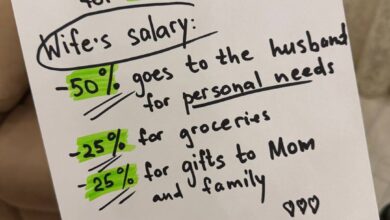 for
Wife's salary:
-50% goes to the husband
for personal needs
-25% for groceries
-25% for gifts to Mom
and family